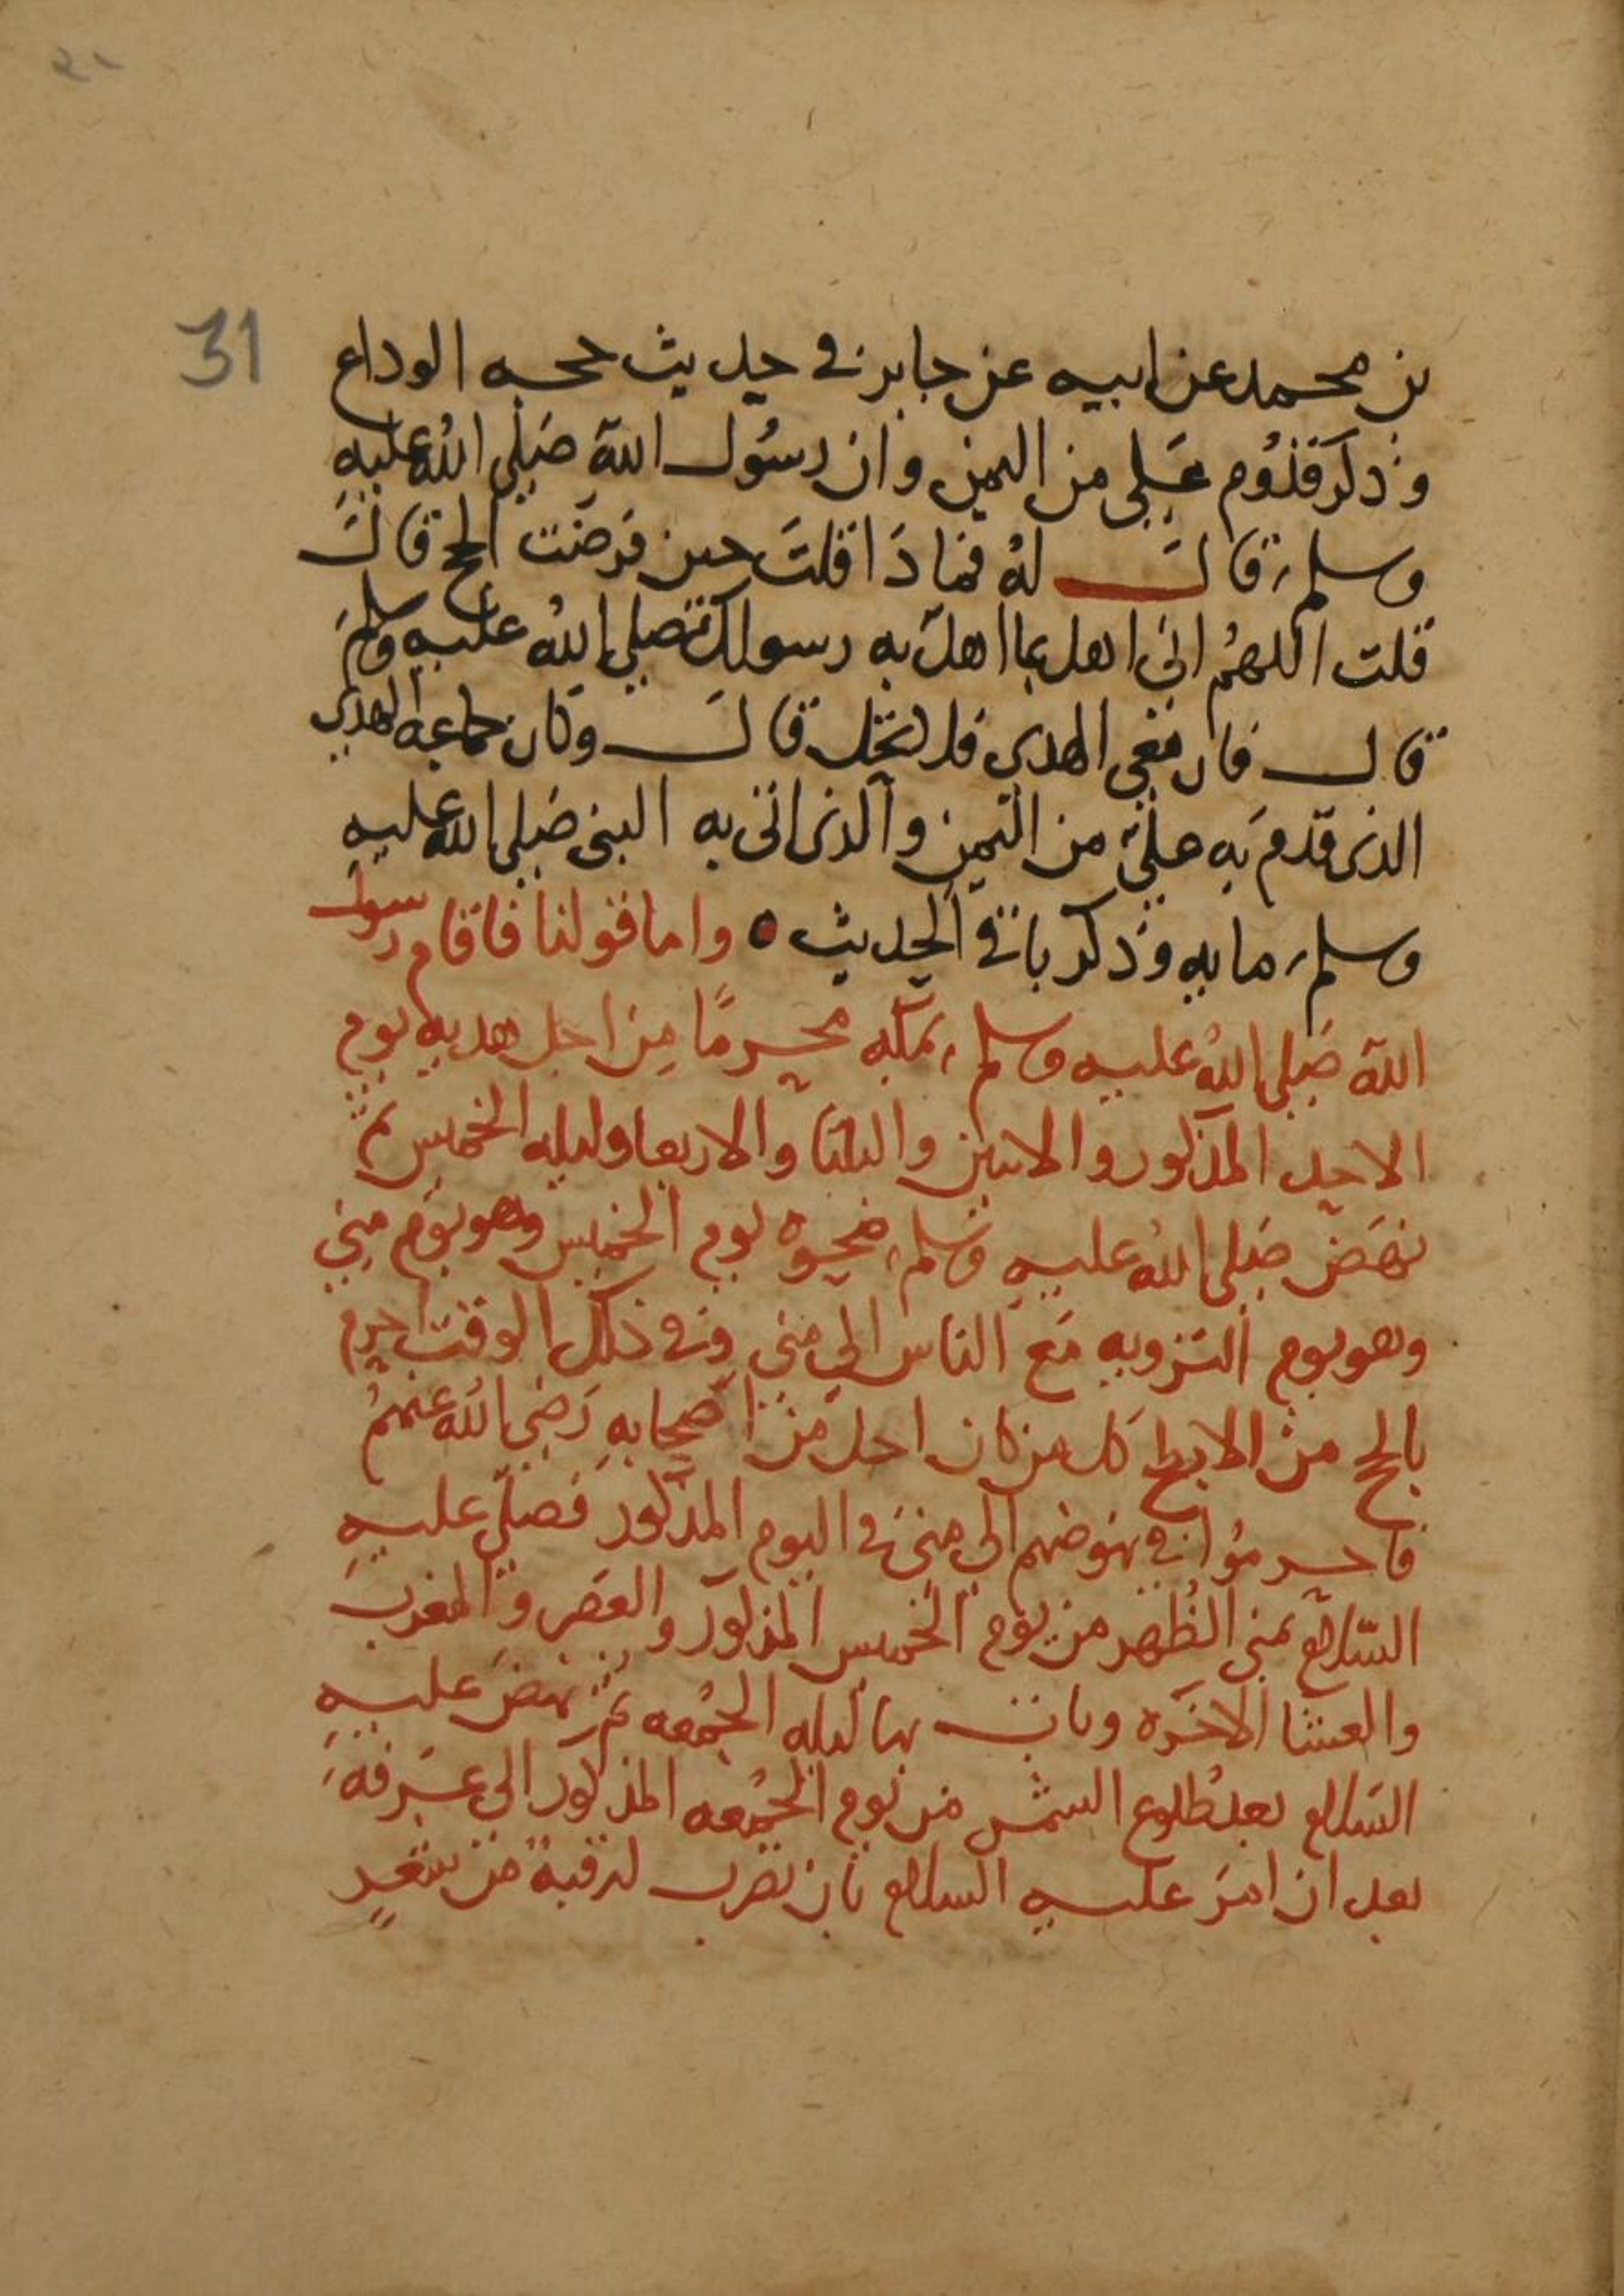 31
بن محمد عن ابيه عن جابر في حديث حجه الوداع
وذكر قدوم علي من اليمن وان رسول الله صلى الله عليه
وسلم قال له فماذا قلت حين فرضت الحج قال
قلت اللهم اني اهل بما اهل به رسولك صلى الله عليه وسلم
قال فان معي الهدي فلا تحل قال وكان جماعه الهدي
الذى قدم به علي من اليمن والذى اتى به النبي صلى الله عليه
وسلم مايه وذكر باقي الحديث ٥ واما قولنا فاقام رسول
الله صلى الله عليه وسلم بمكه محرما من اجل هديه يوم
الاحد المذكور والاثنين والثلثا والاربعا وليله الخميس ثم
نهض صلى الله عليه وسلم ضحوه يوم الخميس وهو يوم منى
وهو يوم الترويه مع الناس الى منى وفي ذلك الوقت احرم
بالحج من الابطح كل من كان احل من اصحابه رضي الله عنهم
فاحرموا في نهوضهم الى منى في اليوم المذكور فصلى عليه
السلام بمنى الظهر من يوم الخميس المذكور والعصر والمغرب
والعشا الاخره وبات بها ليله الجمعه ثم نهض عليه
السلام بعد طلوع الشمس من يوم الجمعه المذكور الى عرفه
بعد ان امر عليه السلام بان تضرب له قبة من شعر